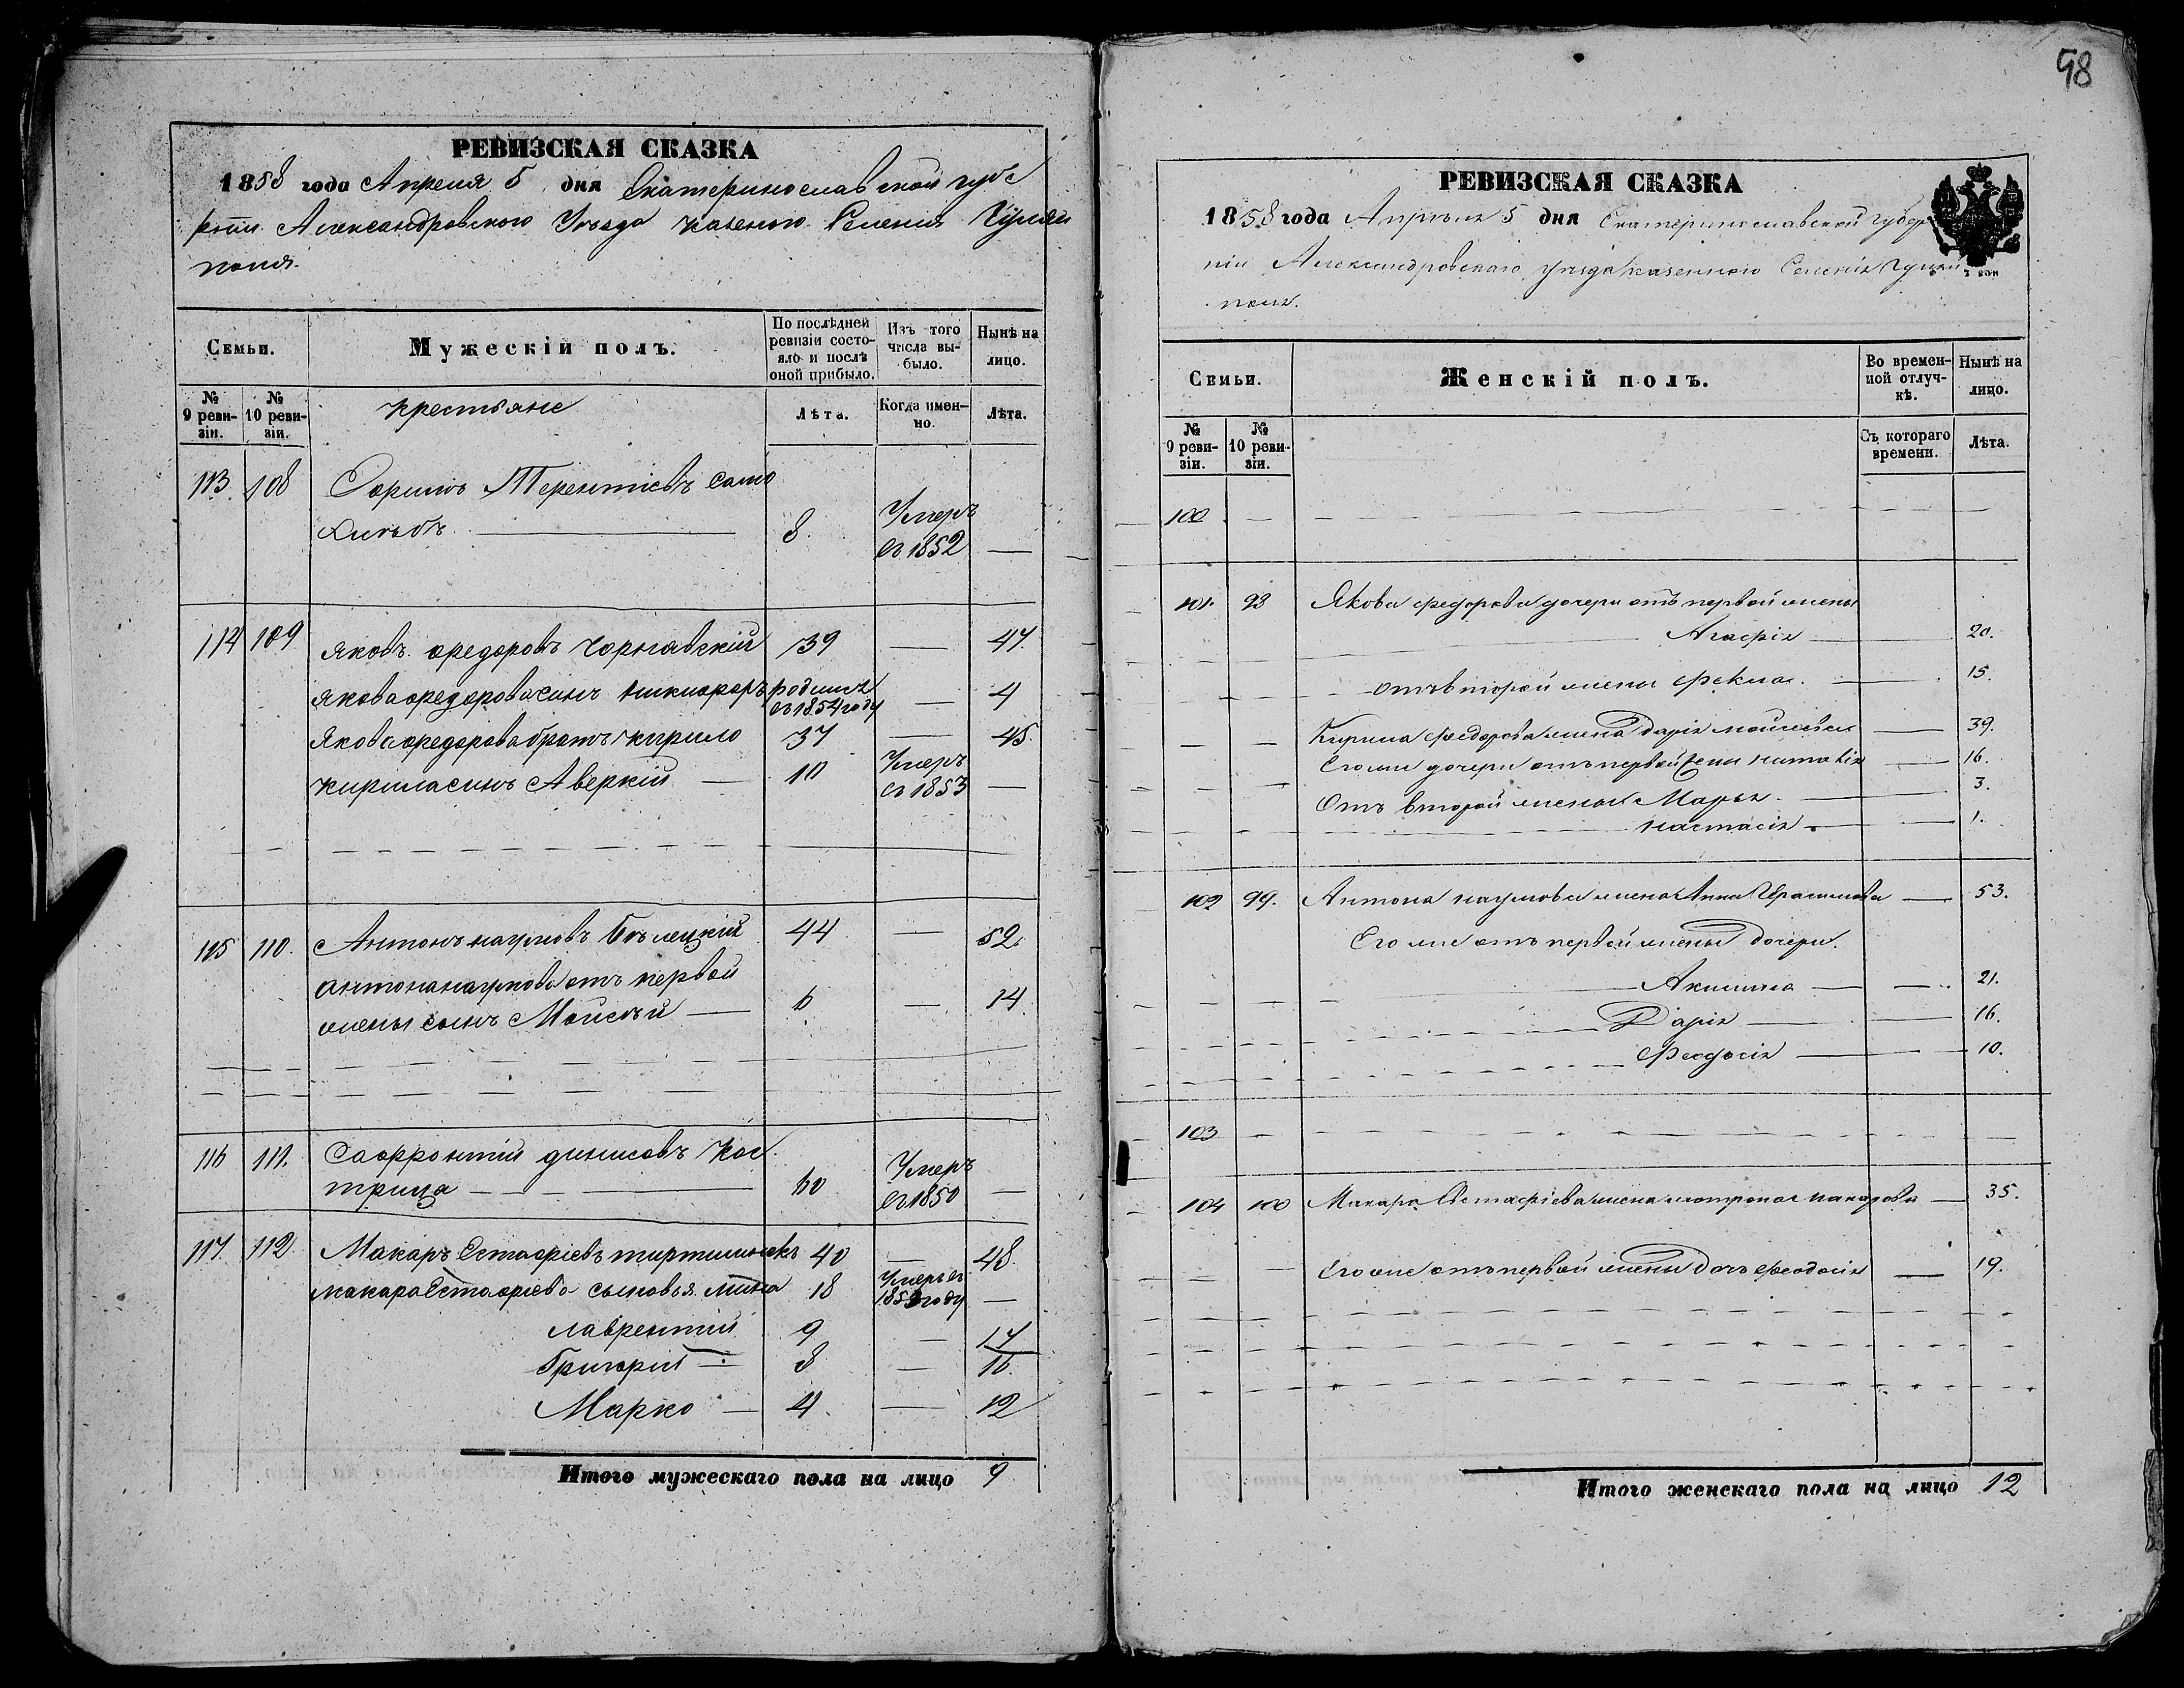 РЕВИЗСКАЯ СКАЗКА
1858 года Апреля 5 дня Екатеринославской губе
рніи Александровскаго Уѣзда казеного Селенія Гуляй
поля.
Семьи.
Мужескій полъ.
По послѣдней ревизіи состо-
яло и послѣ
оной прибыло.
Изъ того
числа вы-
было.
Нынѣ на
лицо.
№
9 реви-
зіи.
№
10 реви-
зіи.
крестьяне
Лѣта.
Когда имен-
но.
Лѣта.
113. 108 Терентіевъ Само
хлѣбъ 8. Умеръ
въ 1852 —
114 109 Яковъ Федоровъ Чорнавскій 39 — 47.
Якова Федорова сынъ Никифоръ родился
въ 1854 году — 4
Якова Федорова братъ Кирило 37 — 45.
Кирила сынъ Аверкій — 10 Умеръ
въ 1853 —
115 110. Антонъ Наумовъ Бѣлецкій 44 — 52.
Антона Наумова отъ первой
жены сынъ Мойсей — 6 — 14
116 111. Софронтій Динисовъ Кос
трица 60 Умеръ
въ 1850 —
117. 112 Макаръ Естафіевъ 40 — 48.
Макара Естафіева сыновья Мина 18 Умеръ въ
1853 году —
Лаврентий 9 — 17
Григорій — 8 — 16.
Марко — 4. — 12
Итого мужескаго пола на лицо 9
98
РЕВИЗСКАЯ СКАЗКА
1858 года Апрѣля 5 дня Екатеринославской губер
ніи Александровскаго уѣзда казеннаго Селенія Гуляй
поля.
Семьи.
Женскій полъ.
Во времен-
ной отлуч-
кѣ.
Нынѣ на
лицо.
№
9 реви-
зіи.
№
10 реви-
зіи.
Съ котораго
времени.
Лѣта.
100
101. 98 Якова Федорова дочери отъ первой жены
Агафія — 20.
отъ второй жены Фекла. — 15.
Кирила Федорова жена Дарія Мойсеева — 39.
Его же дочери отъ первой жены Наталія — 16.
Отъ второй жены Марья — 3.
Настасія — 1.
102 99. Антона Наумова жена Анна Герасимова — 53.
Его же отъ первой жены дочери.
Акилина — 21.
Дарія — 16.
Феодосія — 10.
103
104 100 Макара Евстафіева жена Мотрона Макарова — 35.
Его же отъ первой жены дочь Феодосія — 19.
Итого женскаго пола на лицо 12